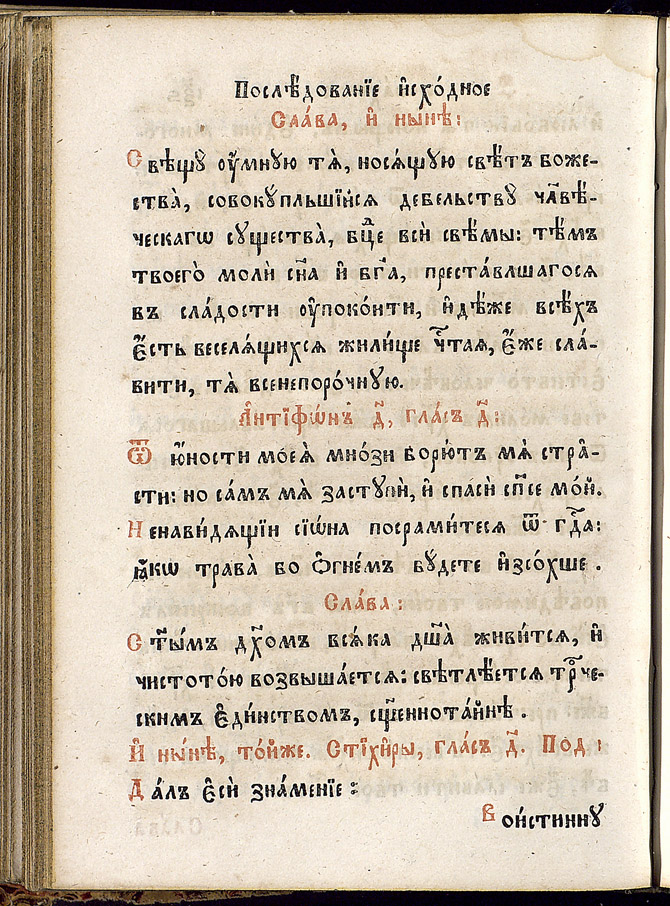 Послѣ́дованїе и҆схо́дное
Сла́ва, и҆ ны́нѣ:
Свѣщꙋ̀ оу҆́мнꙋю тѧ̀, носѧ́щꙋю свѣ́тъ боже-
ства̀, совокꙋ́пльшїйсѧ дебельствꙋ̀ чл҃вѣ́-
ческагѡ сꙋщества̀, бцⷣе всѝ свѣ́мы: тѣ́мъ
твоего̀ молѝ сн҃а и҆ бг҃а, преста́вльшагосѧ
въ сла́дости оу҆поко́ити, и҆дѣ́же всѣ́хъ
є҆́сть веселѧ́щихсѧ жили́ще чⷭ҇таѧ, є҆́же сла́-
вити, тѧ̀ всенепоро́чнꙋю.
А҆нтїфѡ́нъ д҃, гла́съ д҃:
Ѿ ю҆́ности моеѧ̀ мно́зи бо́рютъ мѧ̀ стра̑-
сти: но са́мъ мѧ̀ застꙋпѝ, и҆ спасѝ сп҃се мо́й.
Ненави́дѧщїи сїѡ́на посрами́тесѧ ѿ гдⷭ҇а:
ꙗ҆́кѡ трава̀ бо ѻ҆гне́мъ бꙋ́дете и҆зсо́хше.
Сла́ва:
Ст҃ы́мъ дх҃омъ всѧ́ка дш҃а̀ живи́тсѧ, и҆
чистото́ю возвыша́етсѧ: свѣтлѣ́етсѧ трⷪ҇че-
скимъ є҆ди́нствомъ, сщ҃еннота́йнѣ.
И҆ ны́нѣ, то́йже. Стїхи̑ры, гла́съ д҃. Под:
Да́лъ є҆сѝ зна́менїе:
Вои́стиннꙋ